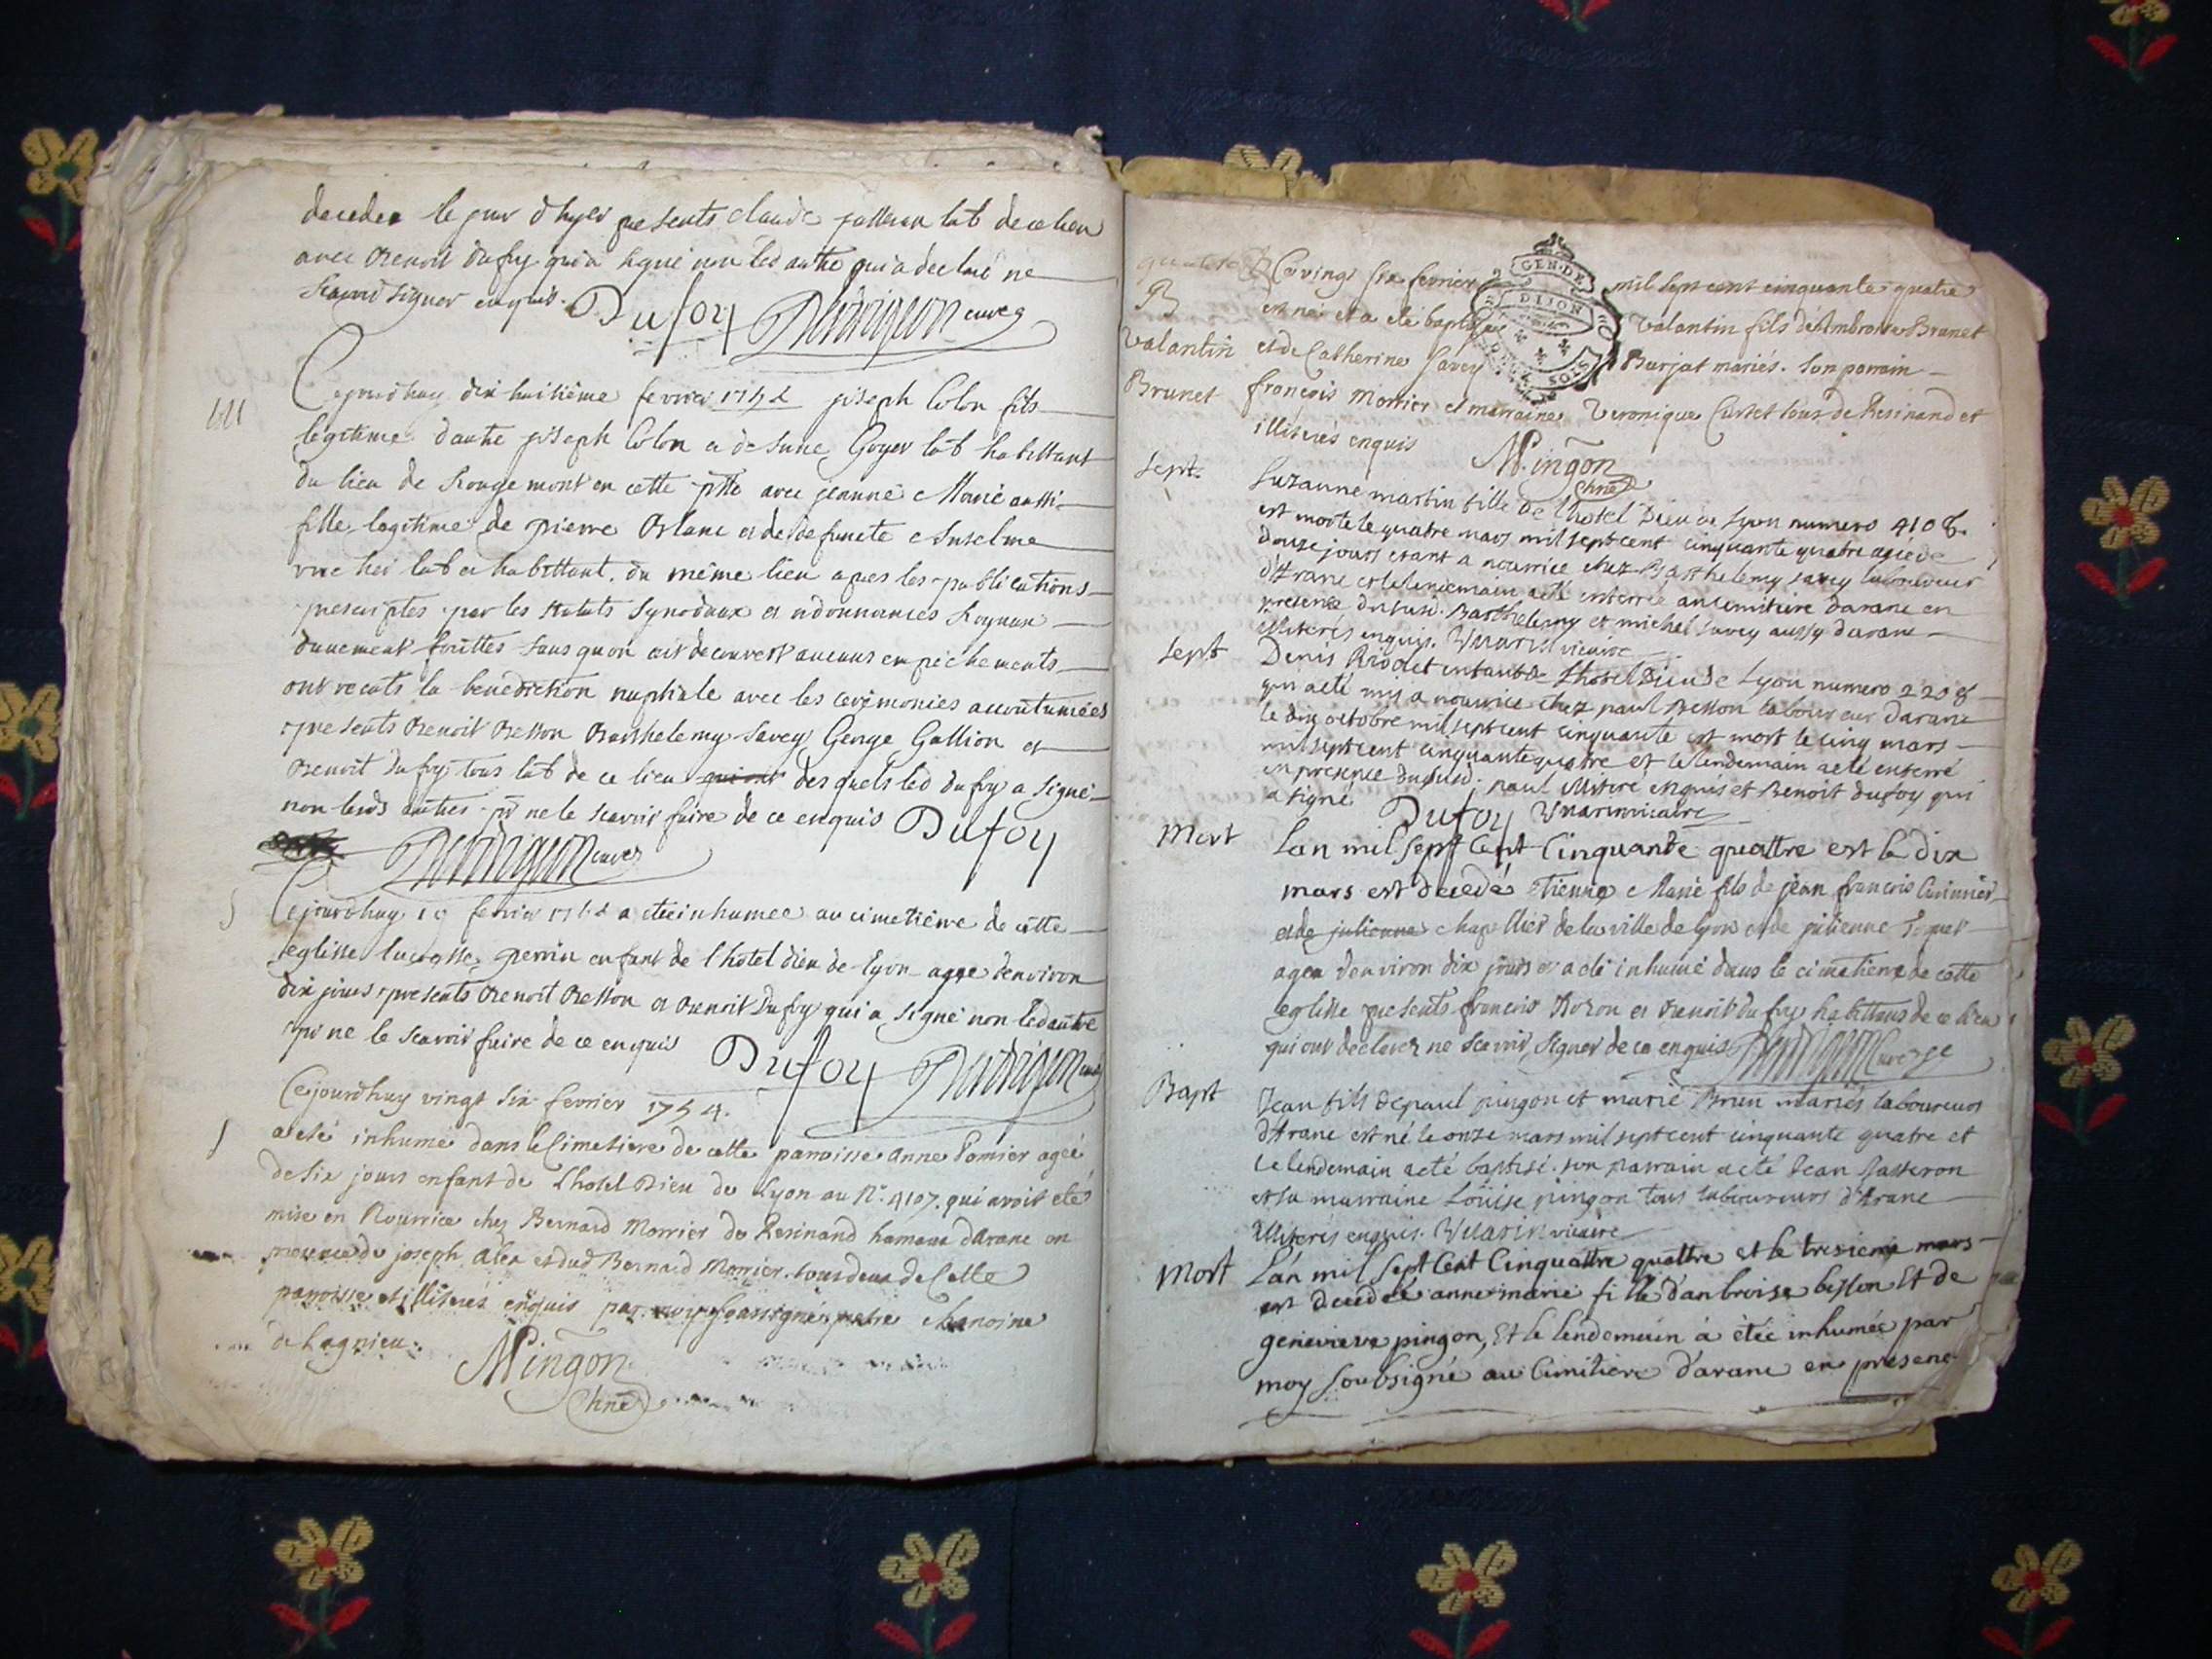 decedea le jour d'hyer presents claude lab de ce lieu
avec Benoit dufoy qui a signé non led autre qui a declaré ne
scavoir signer enquis. Dufoy
Cejourdhuy dix huitième fevrier 1754 joseph Colon fils
legitime d'autre joseph Colon et de Goyer lab habittant
du lieu de Rougemont en cette avec jeanne Marie aussi
fille legitime de pierre Blanc et de defuncte
lab et habittant du même lieu apres les publications
prescriptes par les statuts synodaux et ordonnances Royaux
duement faittes sans qu'on ait decouvert aucuns empechements
ont receuts la benediction nuptiale avec les ceremonies accoutumées
presents Benoit Besson Barthelemy Savey George Gallion et
Benoit dufoy tous lab de ce lieu desquels led dufoy a signé
non leuds autres pr ne le scavoir faire de ce enquis Dufoy
Cejourdhuy 19 fevrier 1754 a eteé inhumee au cimetière de cette
eglisse perrin enfant de l'hotel dieu de lyon agee denviron
dix jours presents Benoit Besson et Benoit dufoy qui a signé non led autre
pr ne le scavoir faire de ce enquis Dufoy
Cejourdhuy vingt six fevrier 1754.
a eté inhumé dans le Cimetiere de cette paroisse anne Pomier ageé
de six jours enfant de L'hotel Dieu de Lyon au N.º 4107. qui avoit eté
mise en Nourrice chez Bernard Morrier de Resinand hameau d'Arane en
presence de joseph et dud Bernard Morrier. tous deux de Cette
paroisse et illiterés enquis par moy soussigné pretre chanoine
de Lagnieu.
Mingon
Chne
Ce vingt six fevrier mil sept cent cinquante quatre
B est né et a eté baptisé Valantin fils d'Ambroise Brunet
Valantin et de Catherine Savey Burjat mariés. Son parrain
Brunet françois Morrier et marraine Veronique Curtet tous de Resinand et
illiterés enquis Mingon
Chne
GEN. DE DIJON
Sept. Suzanne martin fille de L'hotel Dieu de Lyon numero 4108.
est morte le quatre mars mil sept cent cinquante quatre agée de
douze jours etant a nourrice chez Barthelemy savey laboureur
d'Arane et le lendemain a eté enterrée au cimitiere d'arane en
presence du susd. Barthelemy et michel savey aussy d'arane
illiterés enquis. Vuarin vicaire
Sept Denis enfant de L'hotel Dieu de Lyon numero 2208
qui a eté mis a nourrice chez paul Besson laboureur d'arane
le dix octobre mil sept cent cinquante est mort le cinq mars
mil sept cent cinquante quatre et le lendemain a eté enterré
en presence du susd. paul illitéré enquis et Benoit dufoy qui
a signé Dufoy Vuarin vicaire
Mort L'an mil sept Cent Cinquante quattre est le dix
mars est decedé Etienne Marie fils de jean francois
et de julienne chapellier de la ville de lyon et de julienne
agea denviron dix jours et a eté inhumé dans le cimetiere de cette
eglisse presents francois et Benoit du foy habittans de ce lieu
qui ont declarez ne scavoir signer de ce enquis
Bapt Jean fils de paul pingon et marie Brun mariés laboureurs
d'Arane est né le onze mars mil sept cent cinquante quatre et
le lendemain a eté baptisé. son parrain a eté Jean Passeron
et sa marraine Loüise pingon tous laboureurs d'Arane
illiterés enquis. Vuarin vicaire
Mort L'an mil sept Cent Cinquattre quattre et le tresieme mars
est decedée anne marie fille d'anbroise besson Et de
genevieve pingon, Et le lendemain à étée inhumée par
moy soubsigné au Cimitiere d'arane en presence